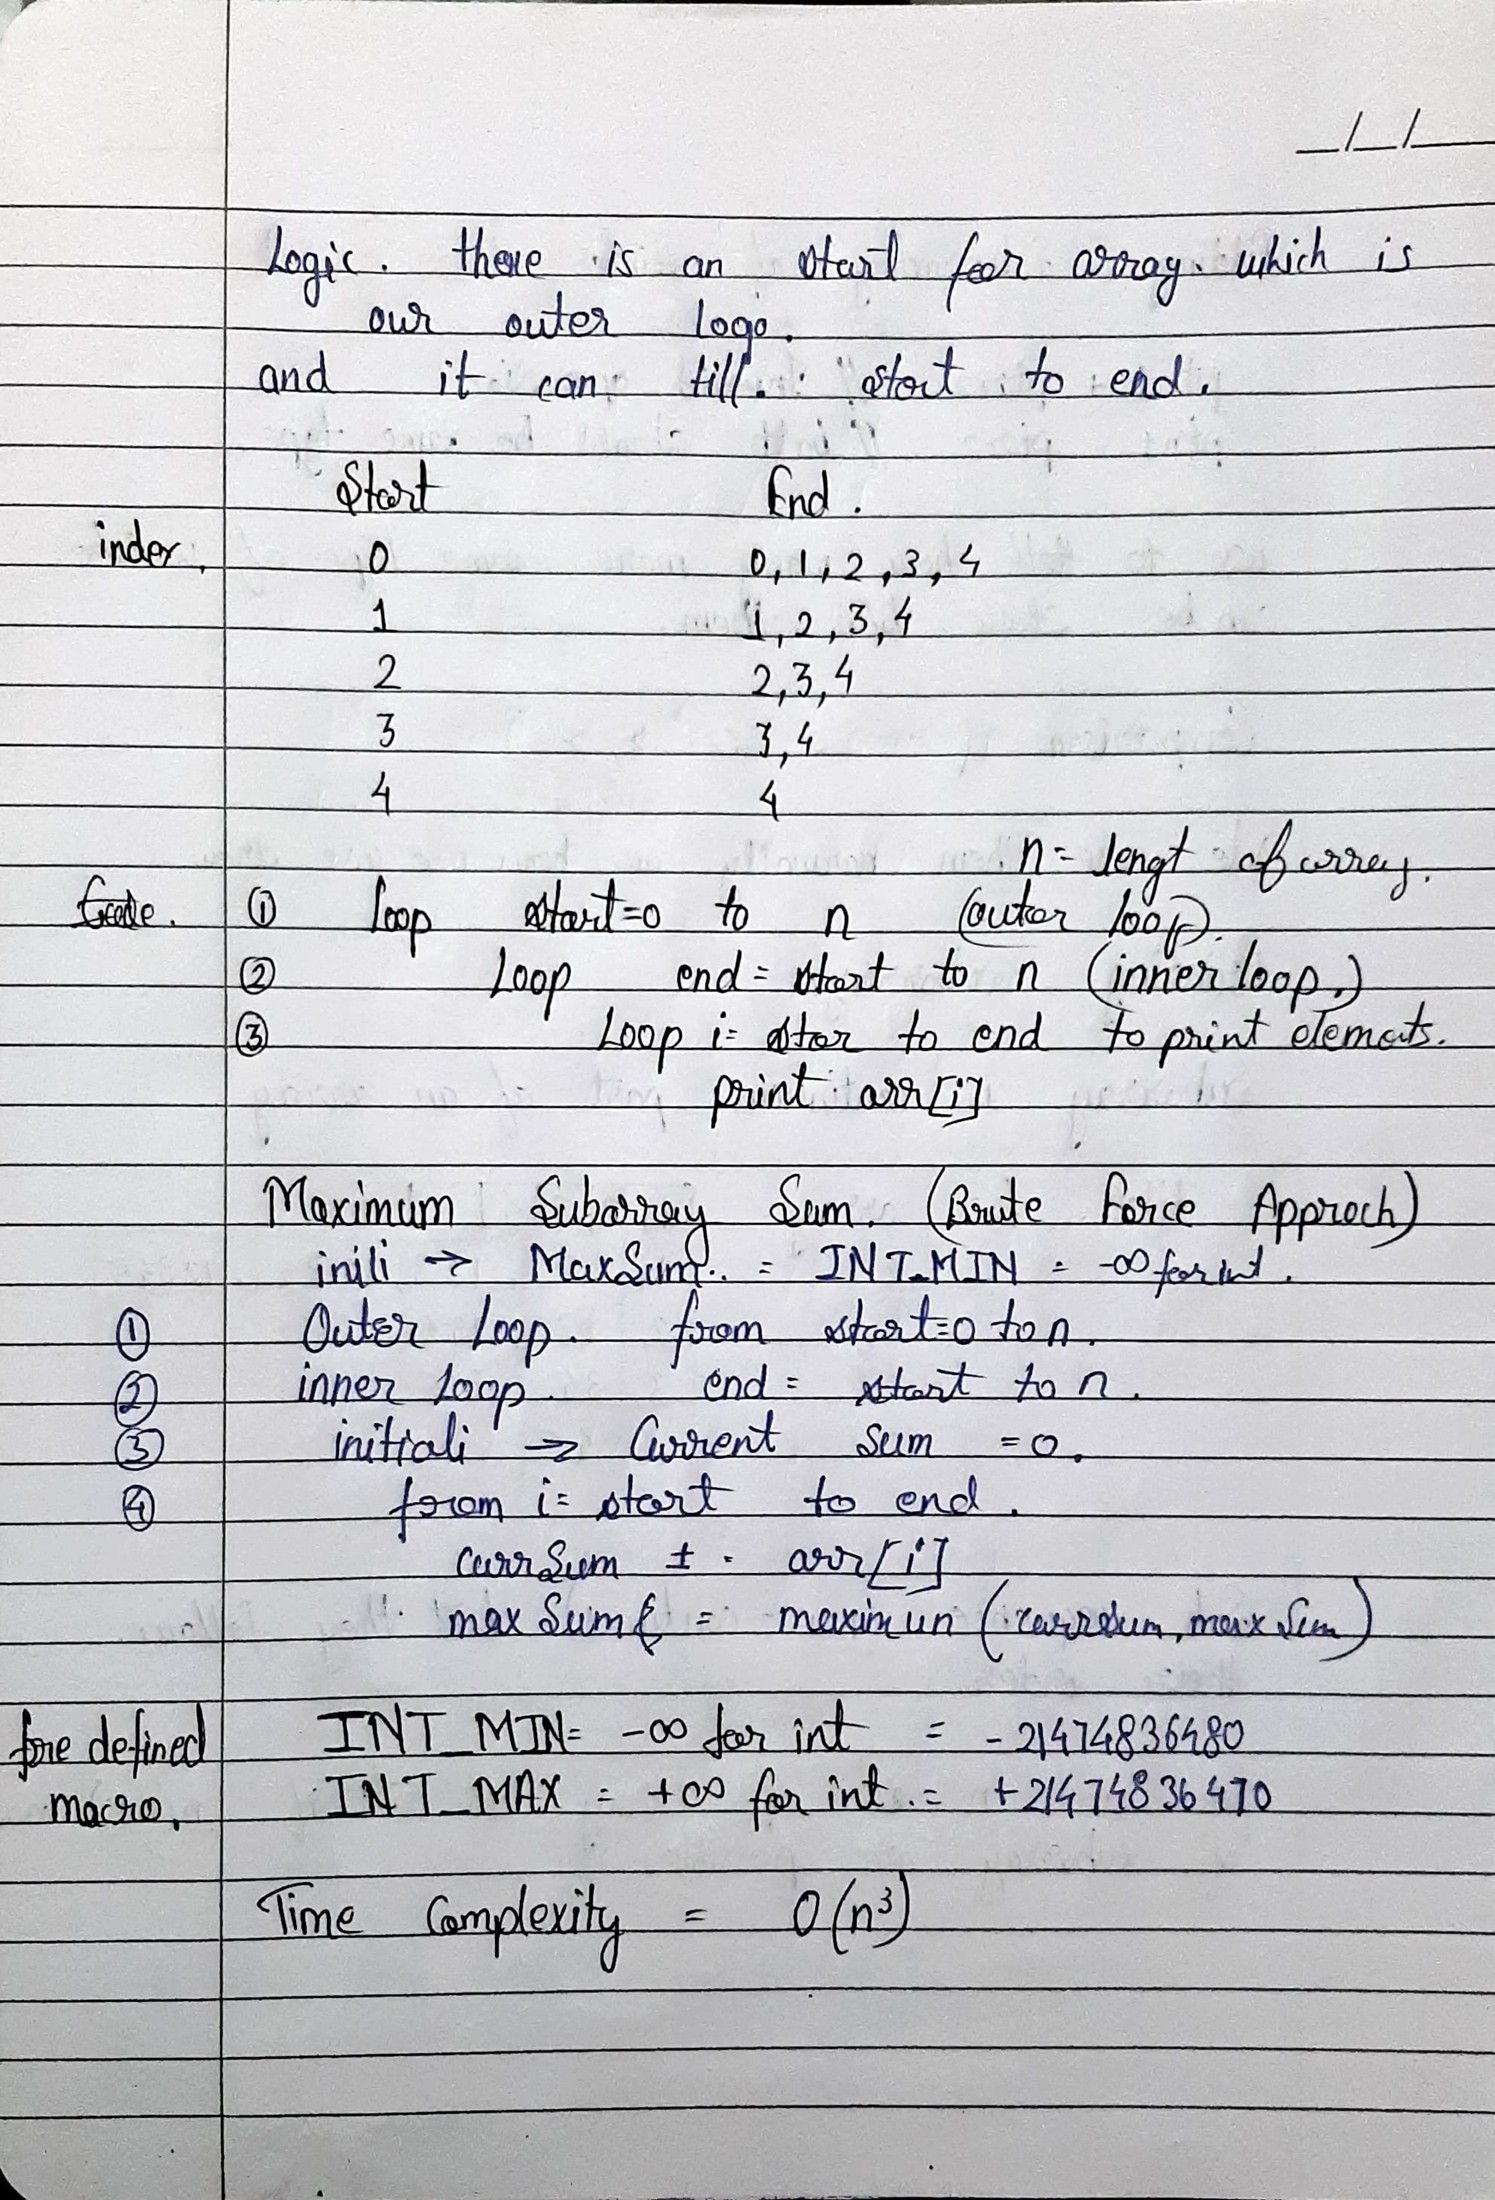 _/_/_
Logic. there is an start for array. which is
our outer logo.
and it can till. start to end.
Start End.
index. 0 0, 1, 2, 3, 4
1 1, 2, 3, 4
2 2, 3, 4
3 3, 4
4 4
n = lengt of array.
Code. ① Loop start=0 to n (outer loop).
② Loop end = start to n (inner loop.)
③ Loop i= star to end to print elements.
print arr[i]
Maximum Subarray Sum. (Brute Force Approch)
inili → MaxSum.. = INT_MIN = -∞ for int.
① Outer Loop. from start=0 to n.
② inner Loop. end = start to n.
③ initiali → Current Sum = 0.
④ from i= start to end.
currSum ± . arr[i]
max Sum = maximun (currsum, max Sum)
pre defined INT_MIN= -∞ for int = - 21474836480
macro. INT_MAX = +∞ for int. = + 21474836470
Time Complexity = O(n³)